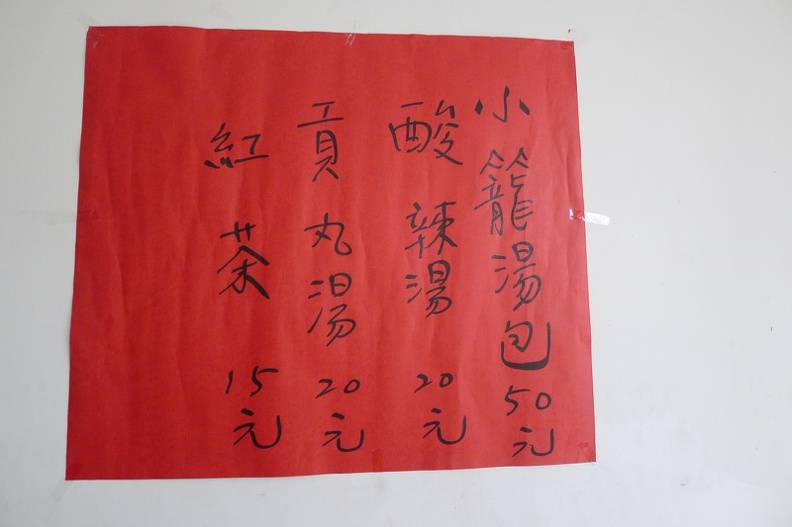 小籠湯包50元
酸辣湯20元
貢丸湯20元
紅茶15元